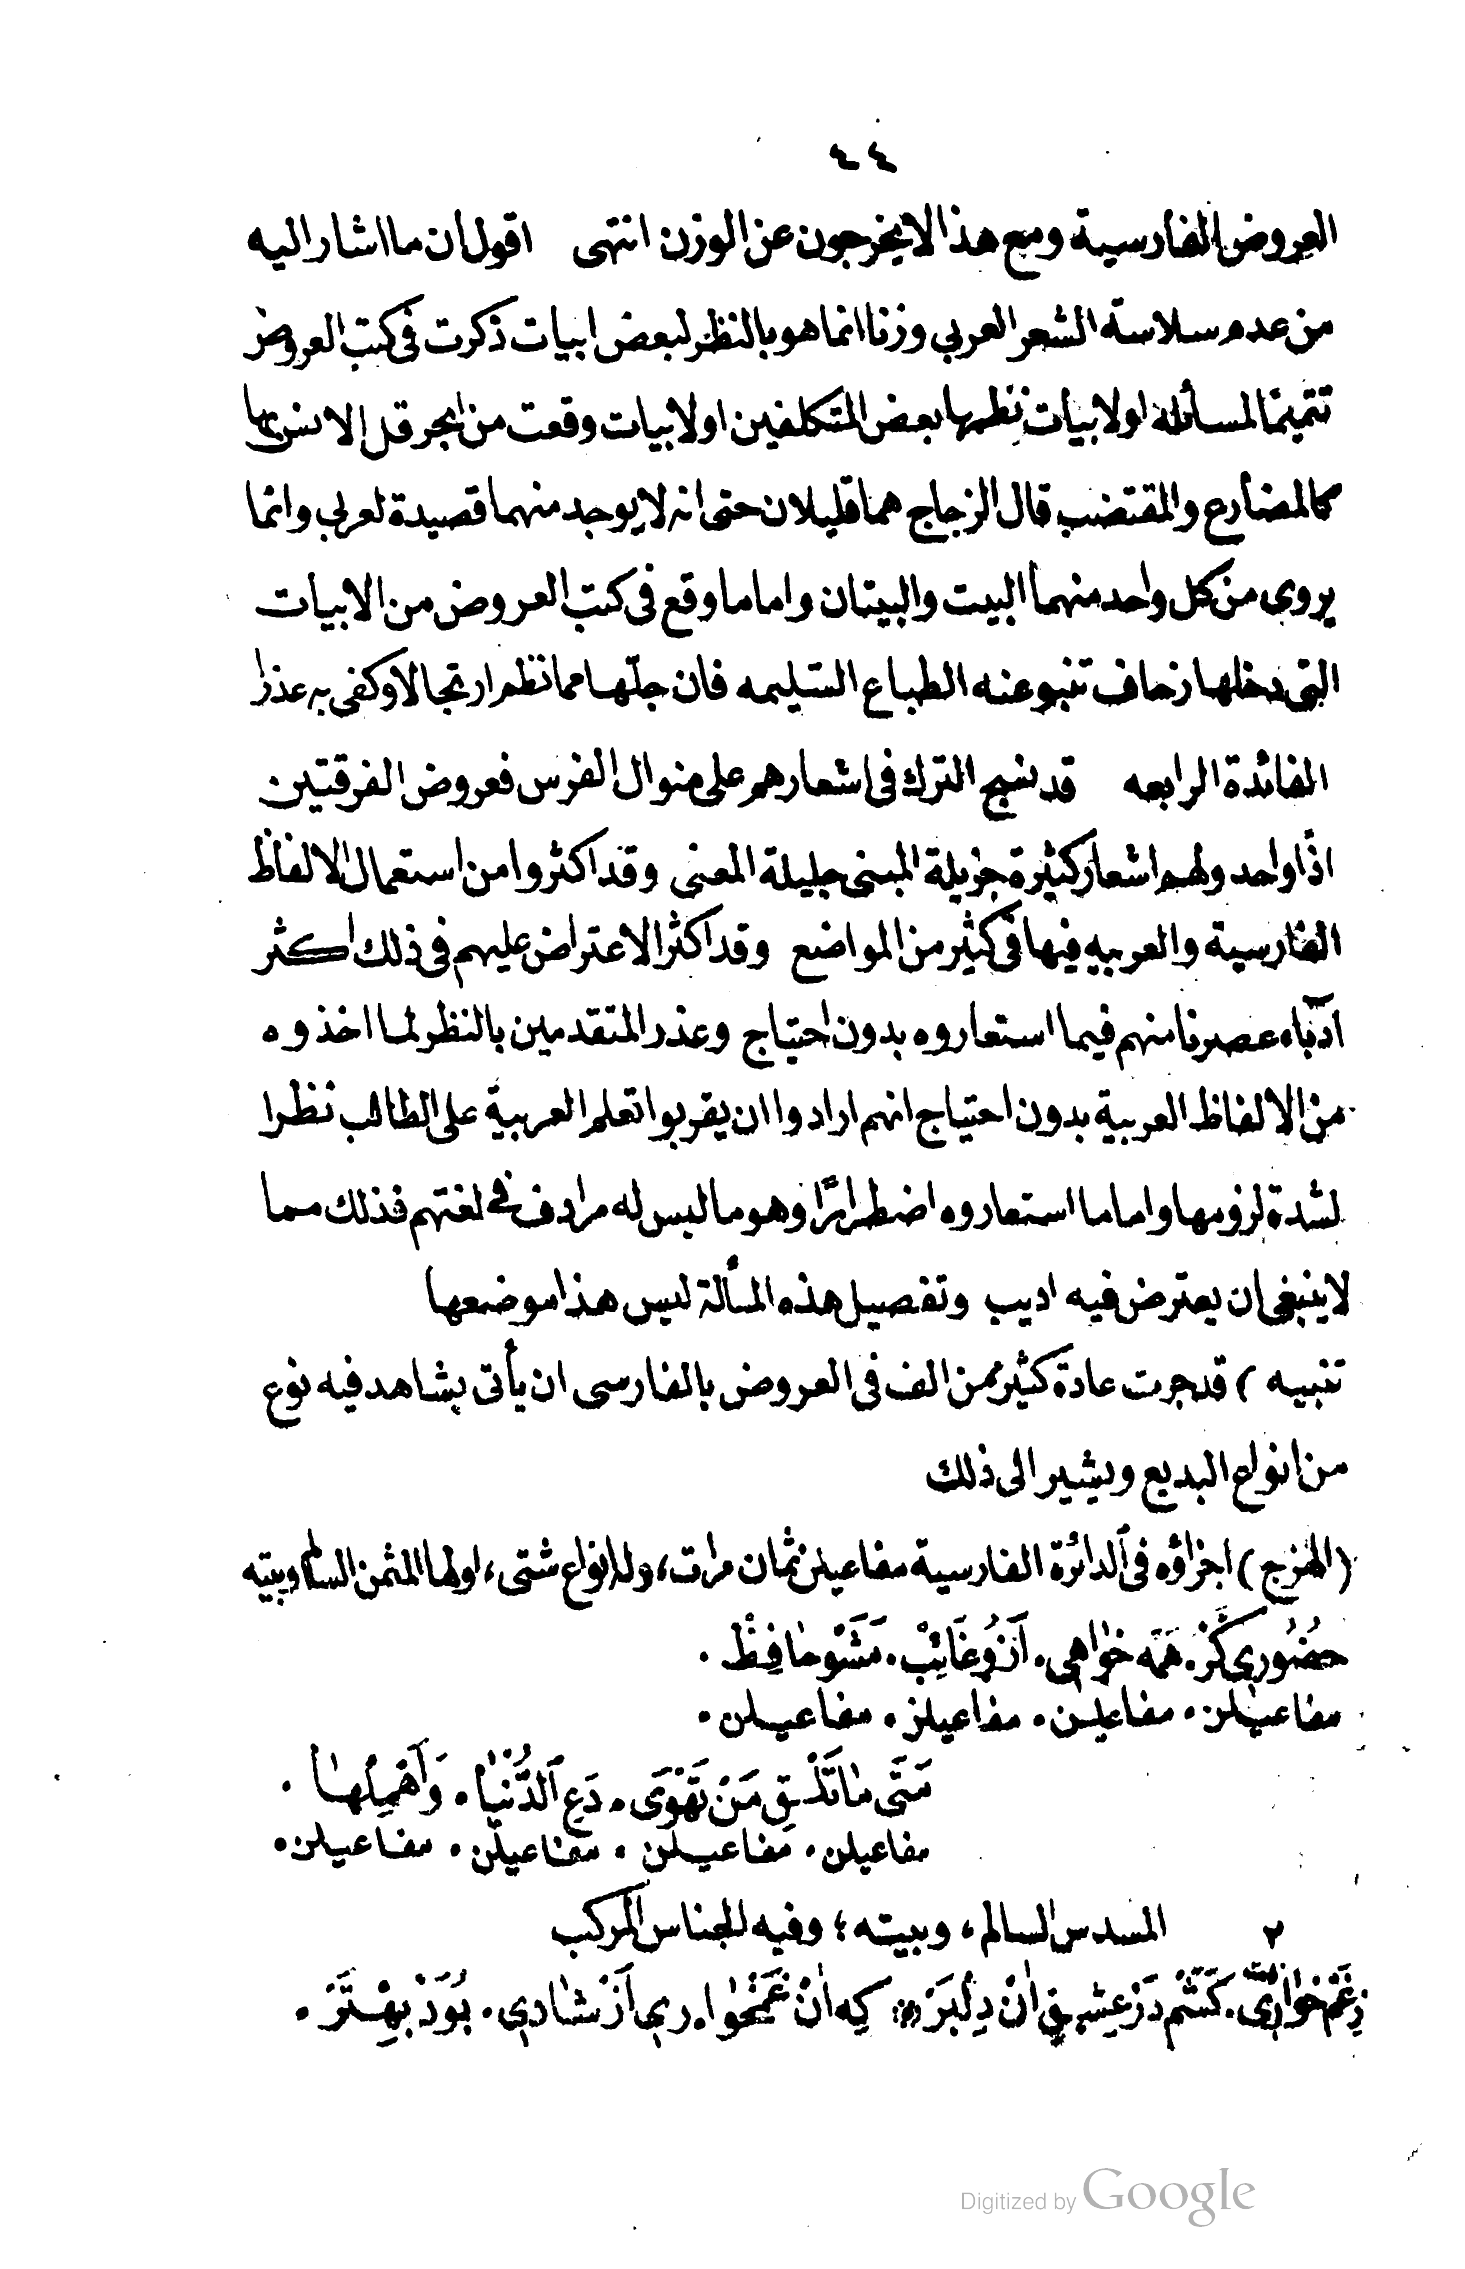 ٤٤
العروض الفارسية ومع هذا لا يخرجون عن الوزن انتهى اقول ان ما اشار اليه
من عدم سلاسة الشعر العربي وزنا انما هو بالنظر لبعض ابيات ذكرت في كتب العروض
تتميمًا لمسألة او لابيات نظمها بعض المتكلفين او لابيات وقعت من ابحر قل الانس بها
كالمضارع والمقتضب قال الزجاج هما قليلان حتى انه لا يوجد منهما قصيدة لعربي وانما
يروى من كل واحد منهما البيت والبيتان واما ما وقع في كتب العروض من الابيات
التي دخلها زحاف تنبو عنه الطباع السّليمه فان جلّها مما نظم ارتجالا وكفى به عذرا
الفائدة الرابعه قد نسج الترك في اشعارهم على منوال الفرس فعروض الفرقتين
اذًا واحد ولهم اشعار كثيرة جزيلة المبنى جليلة المعنى وقد اكثروا من استعمال الالفاظ
الفارسية والعربيه فيها في كثير من المواضع وقد اكثر الاعتراض عليهم في ذلك اكثر
ادباء عصرنا منهم فيما استعاروه بدون احتياج وعذر المتقدمين بالنظر لما اخذوه
من الالفاظ العربية بدون احتياج انهم ارادوا ان يقربوا تعلم العربية على الطالب نظرا
لشدة لزومها واما ما استعاروه اضطرارًا وهو ما ليس له مرادف في لغتهم فذلك مما
لا ينبغي ان يعترض فيه اديب وتفصيل هذه المسألة ليس هذا موضعها
تنبيه ) قد جرت عادة كثير ممن الف في العروض بالفارسى ان يأتى بشاهد فيه نوع
من انواع البديع ويشير الى ذلك
(الهزج) اجزاؤه في الدائرة الفارسية مفاعيلن ثمان مرات، وله انواع شتى، اولها المثمن السالم وبيته
حضُورى گر. هَمَه خواهى. اَزُو غَائِبْ. مَشَوْ حافِظْ.
مفاعيلن. مفاعيلن. مفاعيلن. مفاعيلن.
مَتَى ما تَلْـ. ـقِ مَنْ تَهْوَى. دَعِ الدُّنْيا. وَاَهْمِلْها.
مفاعيلن. مفاعيلن. مفاعيلن. مفاعيلن.
٢ المسدس السالم، وبيته؛ وفيه الجناس المركب
زِغَمْ خوارى. كَشَمْ دَرْ عِشـ. ـقِ اۤنْ دِلْبَرْ كِه اۤنْ غَمْخوا. رى اَزْ شادى. بُوَدْ بِهْتَرْ.
Digitized by Google